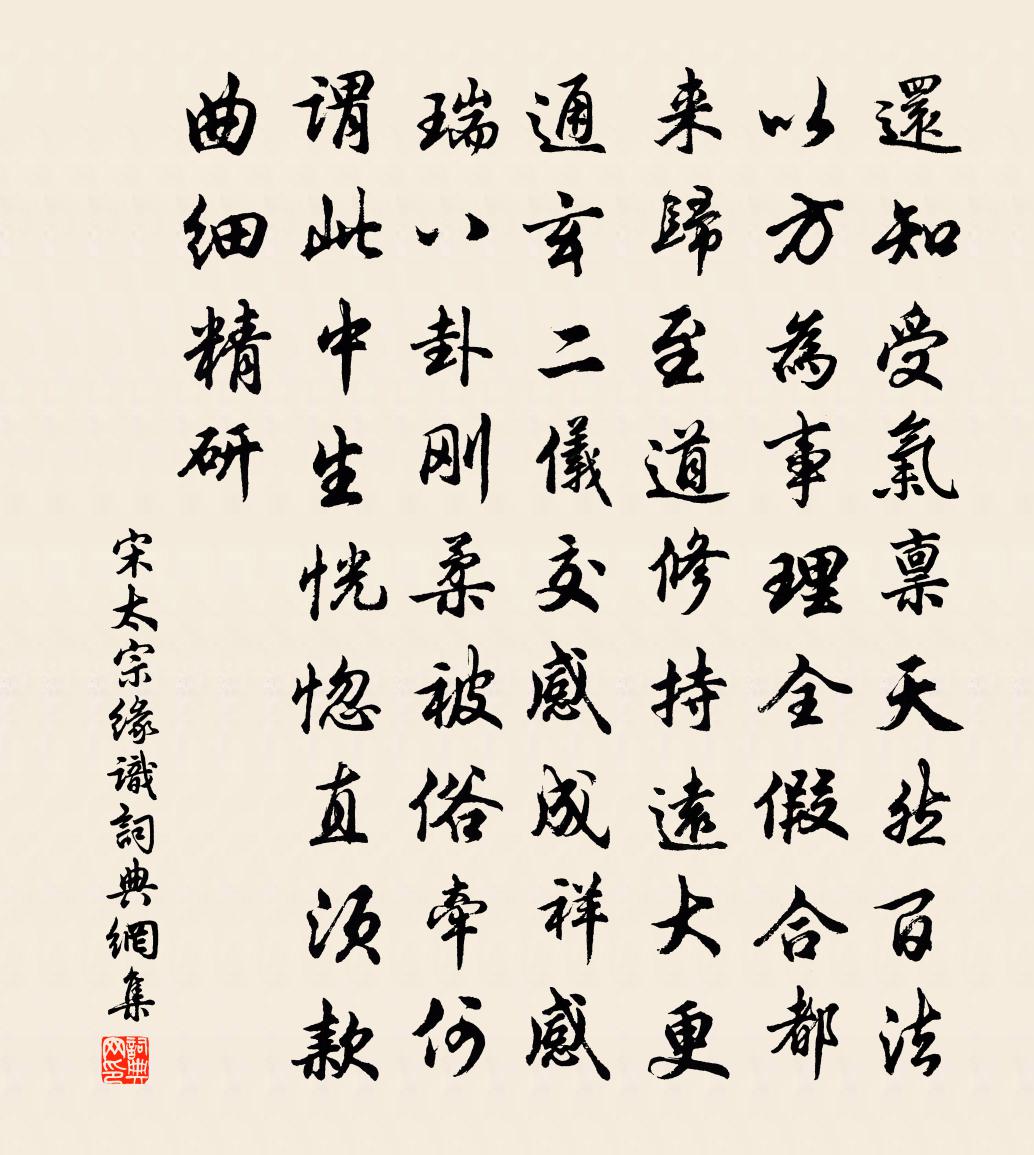 還知受氣禀天然百法
以方為事理全假合都
来歸至道修持遠大更
通玄二儀交感成祥感
瑞八卦刚柔被俗牽何
謂此中生恍惚直須款
曲细精研
宋太宗緣識詞典網集
詞典网印